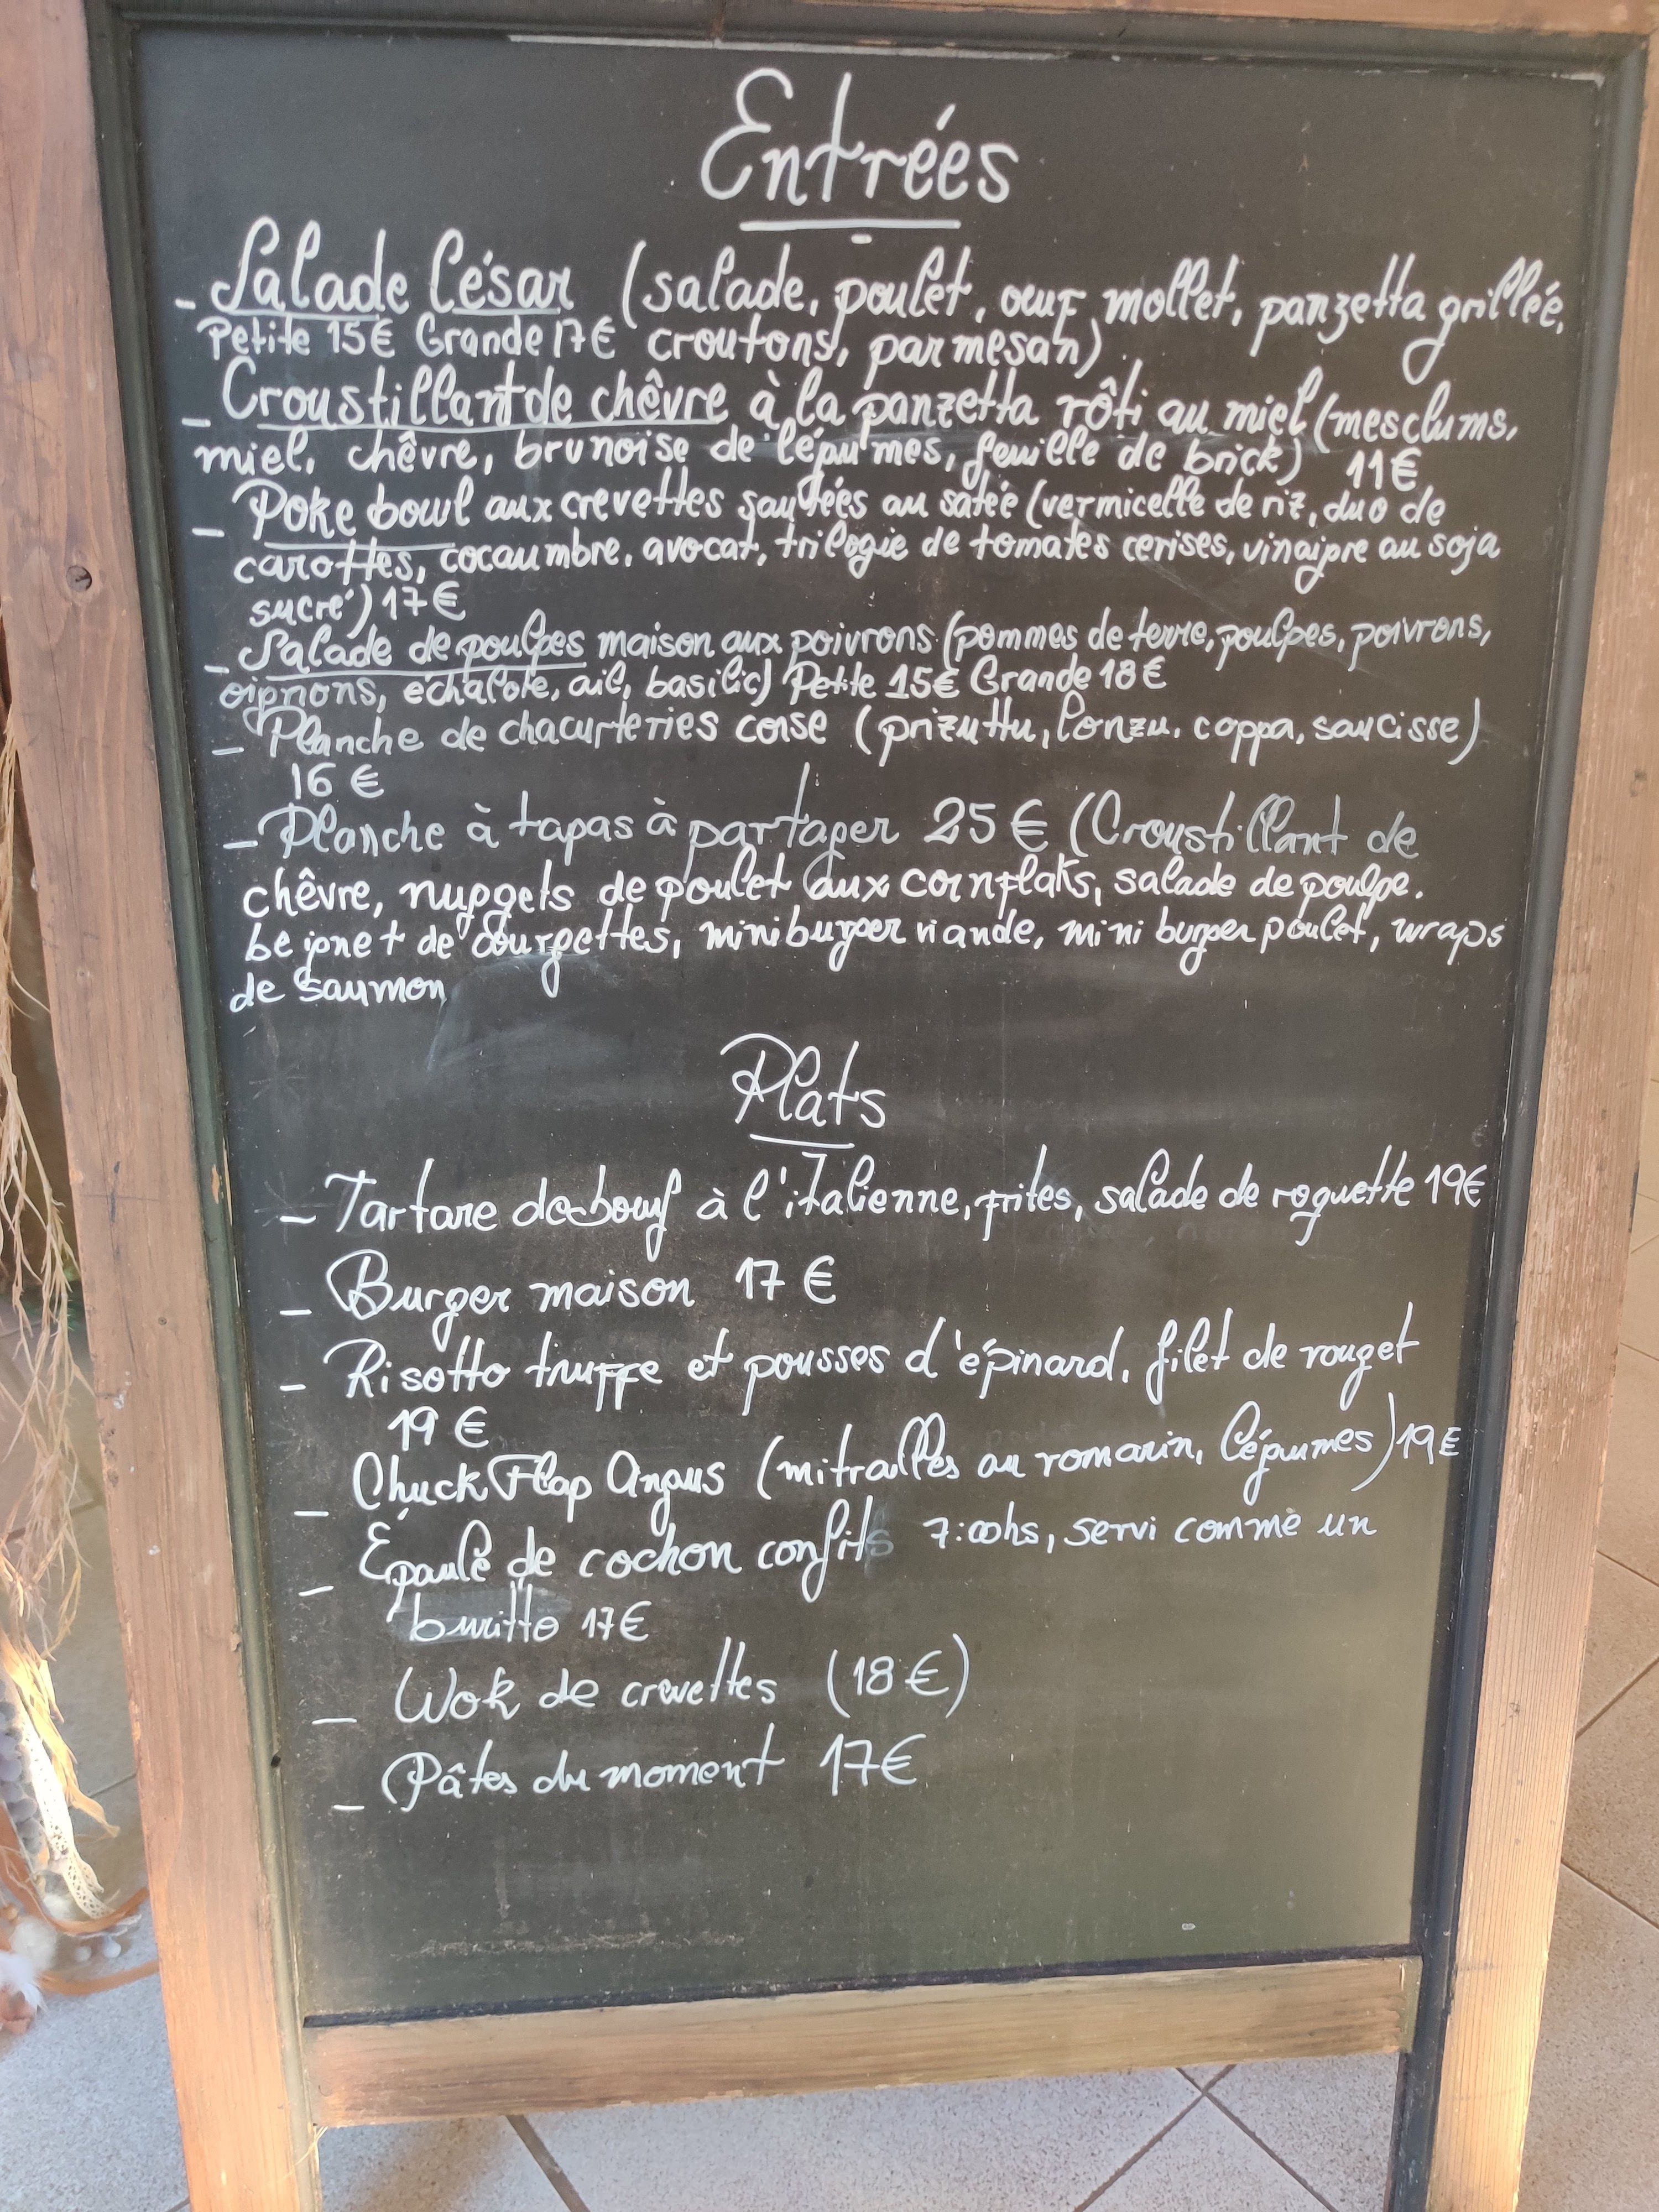 Entrées
- Salade César (salade, poulet, oeuf mollet, panzetta grillée,
Petite 15€ Grande 17€ croutons, parmesan)
- Croustillant de chêvre à la panzetta rôti au miel (mesclums,
miel, chêvre, brunoise de légumes, feuille de brick) 11€
- Poke bowl aux crevettes sautées au satée (vermicelle de riz, duo de
carottes, cocaumbre, avocat, trilogie de tomates cerises, vinaigre au soja
sucré) 17€
- Salade de poulpes maison aux poivrons (pommes de terre, poulpes, poivrons,
oignons, échalote, ail, basilic) Petite 15€ Grande 18€
- Planche de chacurteries corse (prizuttu, lonzu, coppa, saucisse)
16 €
- Planche à tapas à partager 25 € (Croustillant de
chêvre, nuggets de poulet aux cornflaks, salade de poulpe.
beignet de courgettes, mini burger viande, mini burger poulet, wraps
de saumon
Plats
- Tartare de boeuf à l'italienne, frites, salade de roquette 19€
- Burger maison 17 €
- Risotto truffe et pousses d'épinard, filet de rouget
19 €
- Chuck Flap Angus (mitrailles au romarin, légumes) 19€
- Épaule de cochon confits 7:00hs, servi comme un
buritto 17€
- Wok de crevettes (18€)
- Pâtes du moment 17€